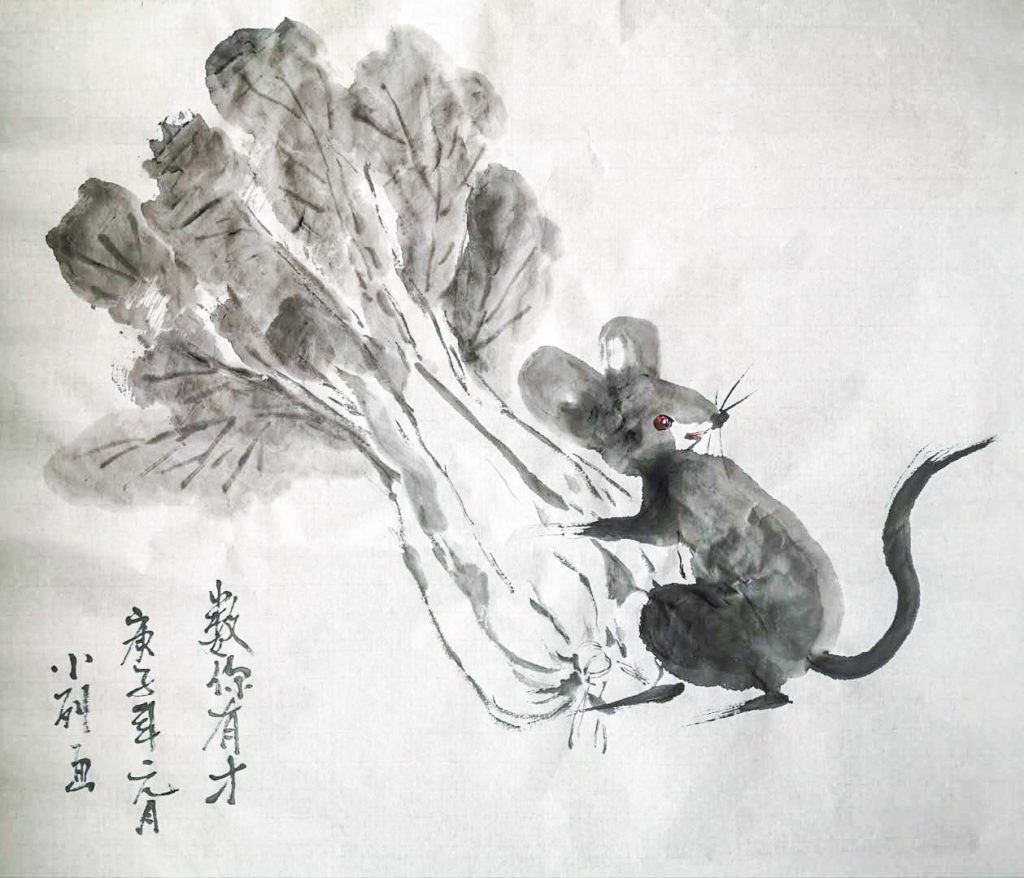 数你有才
庚子年元月
小刚画